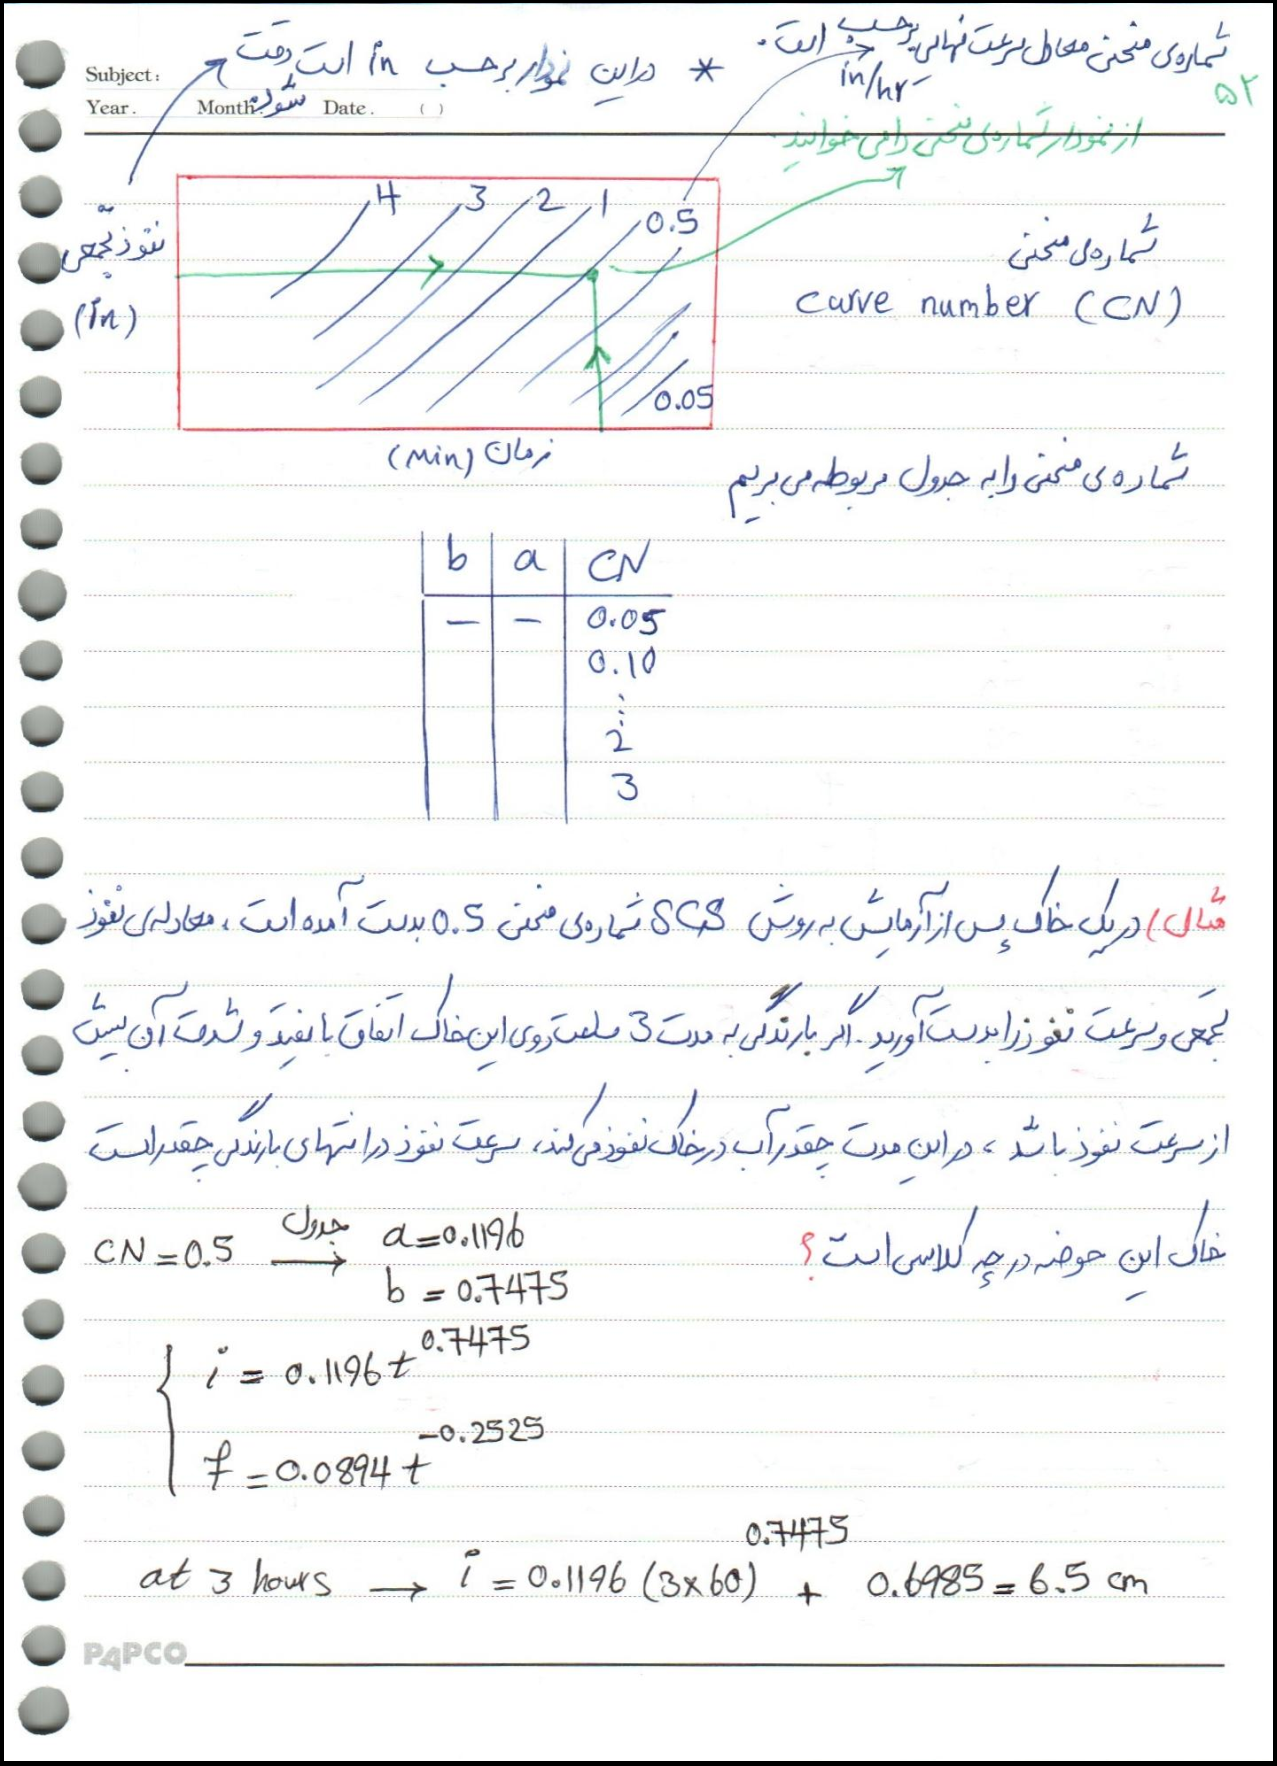 شماره‌ی منحنی معادل سرعت نهایی برحسب in/hr است.
* در این نمودار برحسب in است دقت شود
52
Subject:
Year. Month. Date. ( )
از نمودار شماره‌ی منحنی را می خوانید.
4 3 2 1 0.5
نفوذ تجمعی
(in)
شماره‌ی منحنی
Carve number (CN)
0.05
زمان (Min)
شماره‌ی منحنی را به جدول مربوطه می بریم
b a CN
– – 0.05
0.10
⋮
2
3
مثال) در یک خاک پس از آزمایش به روش SCS شماره‌ی منحنی 0.5 بدست آمده است، معادله‌ی نفوذ
تجمعی و سرعت نفوذ را بدست آورید. اگر بارندگی به مدت 3 ساعت روی این خاک اتفاق بایفتد و شدت آن بیش
از سرعت نفوذ باشد، در این مدت چقدر آب در خاک نفوذ می کند، سرعت نفوذ در انتهای بارندگی چقدر است
خاک این حوضه در چه کلاسی است؟
CN = 0.5 جدول → a = 0.1196
b = 0.7475
i = 0.1196 t^0.7475
f = 0.0894 t^-0.2525
at 3 hours → i = 0.1196 (3x60)^0.7475 + 0.6985 = 6.5 cm
PAPCO